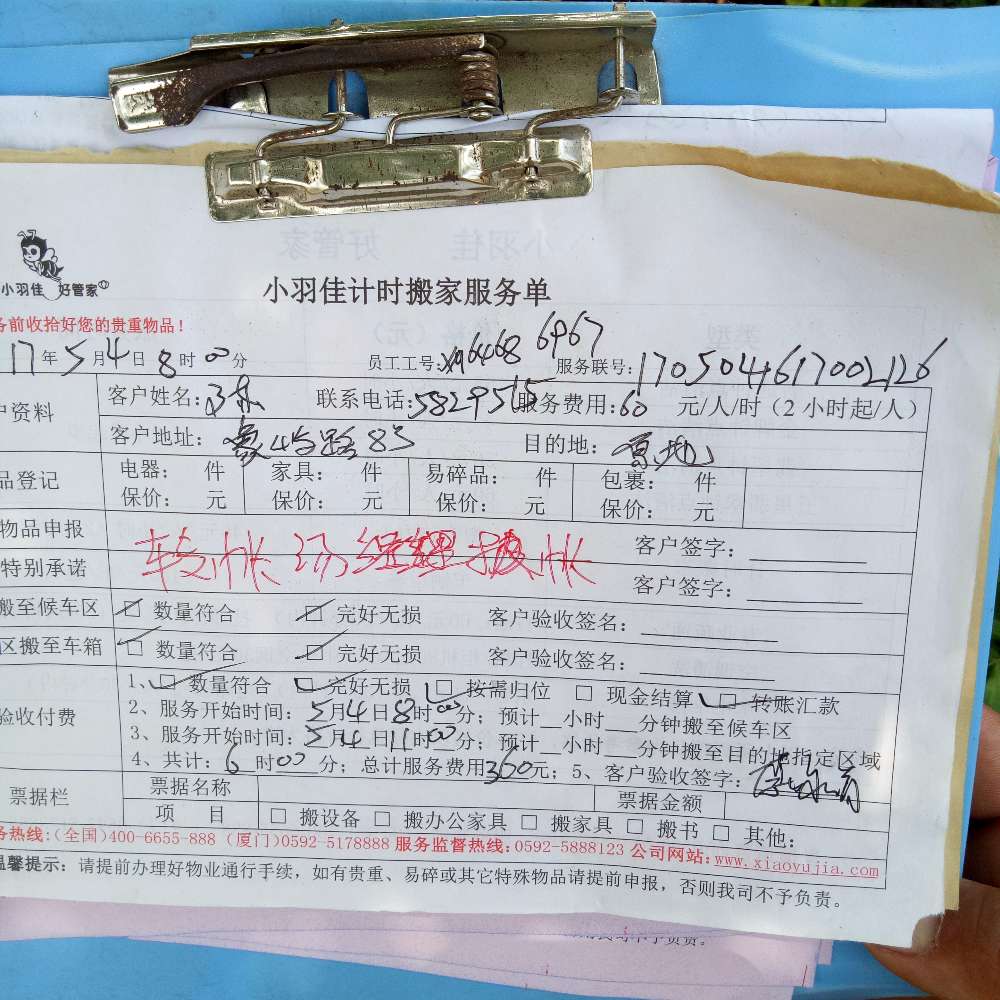 小羽佳 好管家
小羽佳计时搬家服务单
务前收拾好您的贵重物品!
17年5月4日8时00分 员工工号: 6468 6967 服务联号:170504617002126
户资料 客户姓名: 联系电话:5829515 服务费用:60 元/人/时(2小时起/人)
客户地址: 路83 目的地:原地
品登记 电器: 件 家具: 件 易碎品: 件 包裹: 件
保价: 元 保价: 元 保价: 元 保价: 元
物品申报 客户签字:
转帐 经理 帐
特别承诺 客户签字:
搬至候车区 □ 数量符合 □ 完好无损 客户验收签名:
区搬至车箱 □ 数量符合 □ 完好无损 客户验收签名:
验收付费 1、□ 数量符合 □ 完好无损 □ 按需归位 □ 现金结算 □ 转账汇款
2、服务开始时间:5月4日8时00分;预计__小时___分钟搬至候车区
3、服务开始时间:5月4日11时00分;预计__小时___分钟搬至目的地指定区域
4、共计:6时00分;总计服务费用360元;5、客户验收签字:
票据栏 票据名称 票据金额
项 目 □ 搬设备 □ 搬办公家具 □ 搬家具 □ 搬书 □ 其他:
务热线:(全国)400-6655-888 (厦门)0592-5178888 服务监督热线:0592-5888123 公司网站:www.xiaoyujia.com
温馨提示:请提前办理好物业通行手续,如有贵重、易碎或其它特殊物品请提前申报,否则我司不予负责。